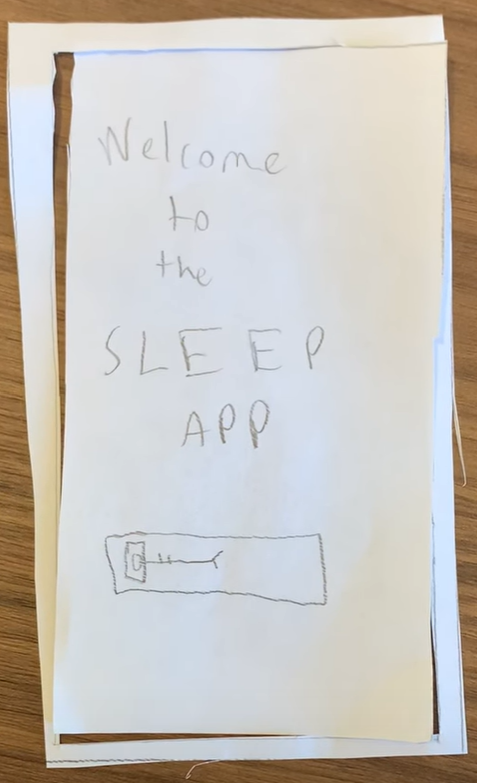 Welcome
to
the
SLEEP
APP